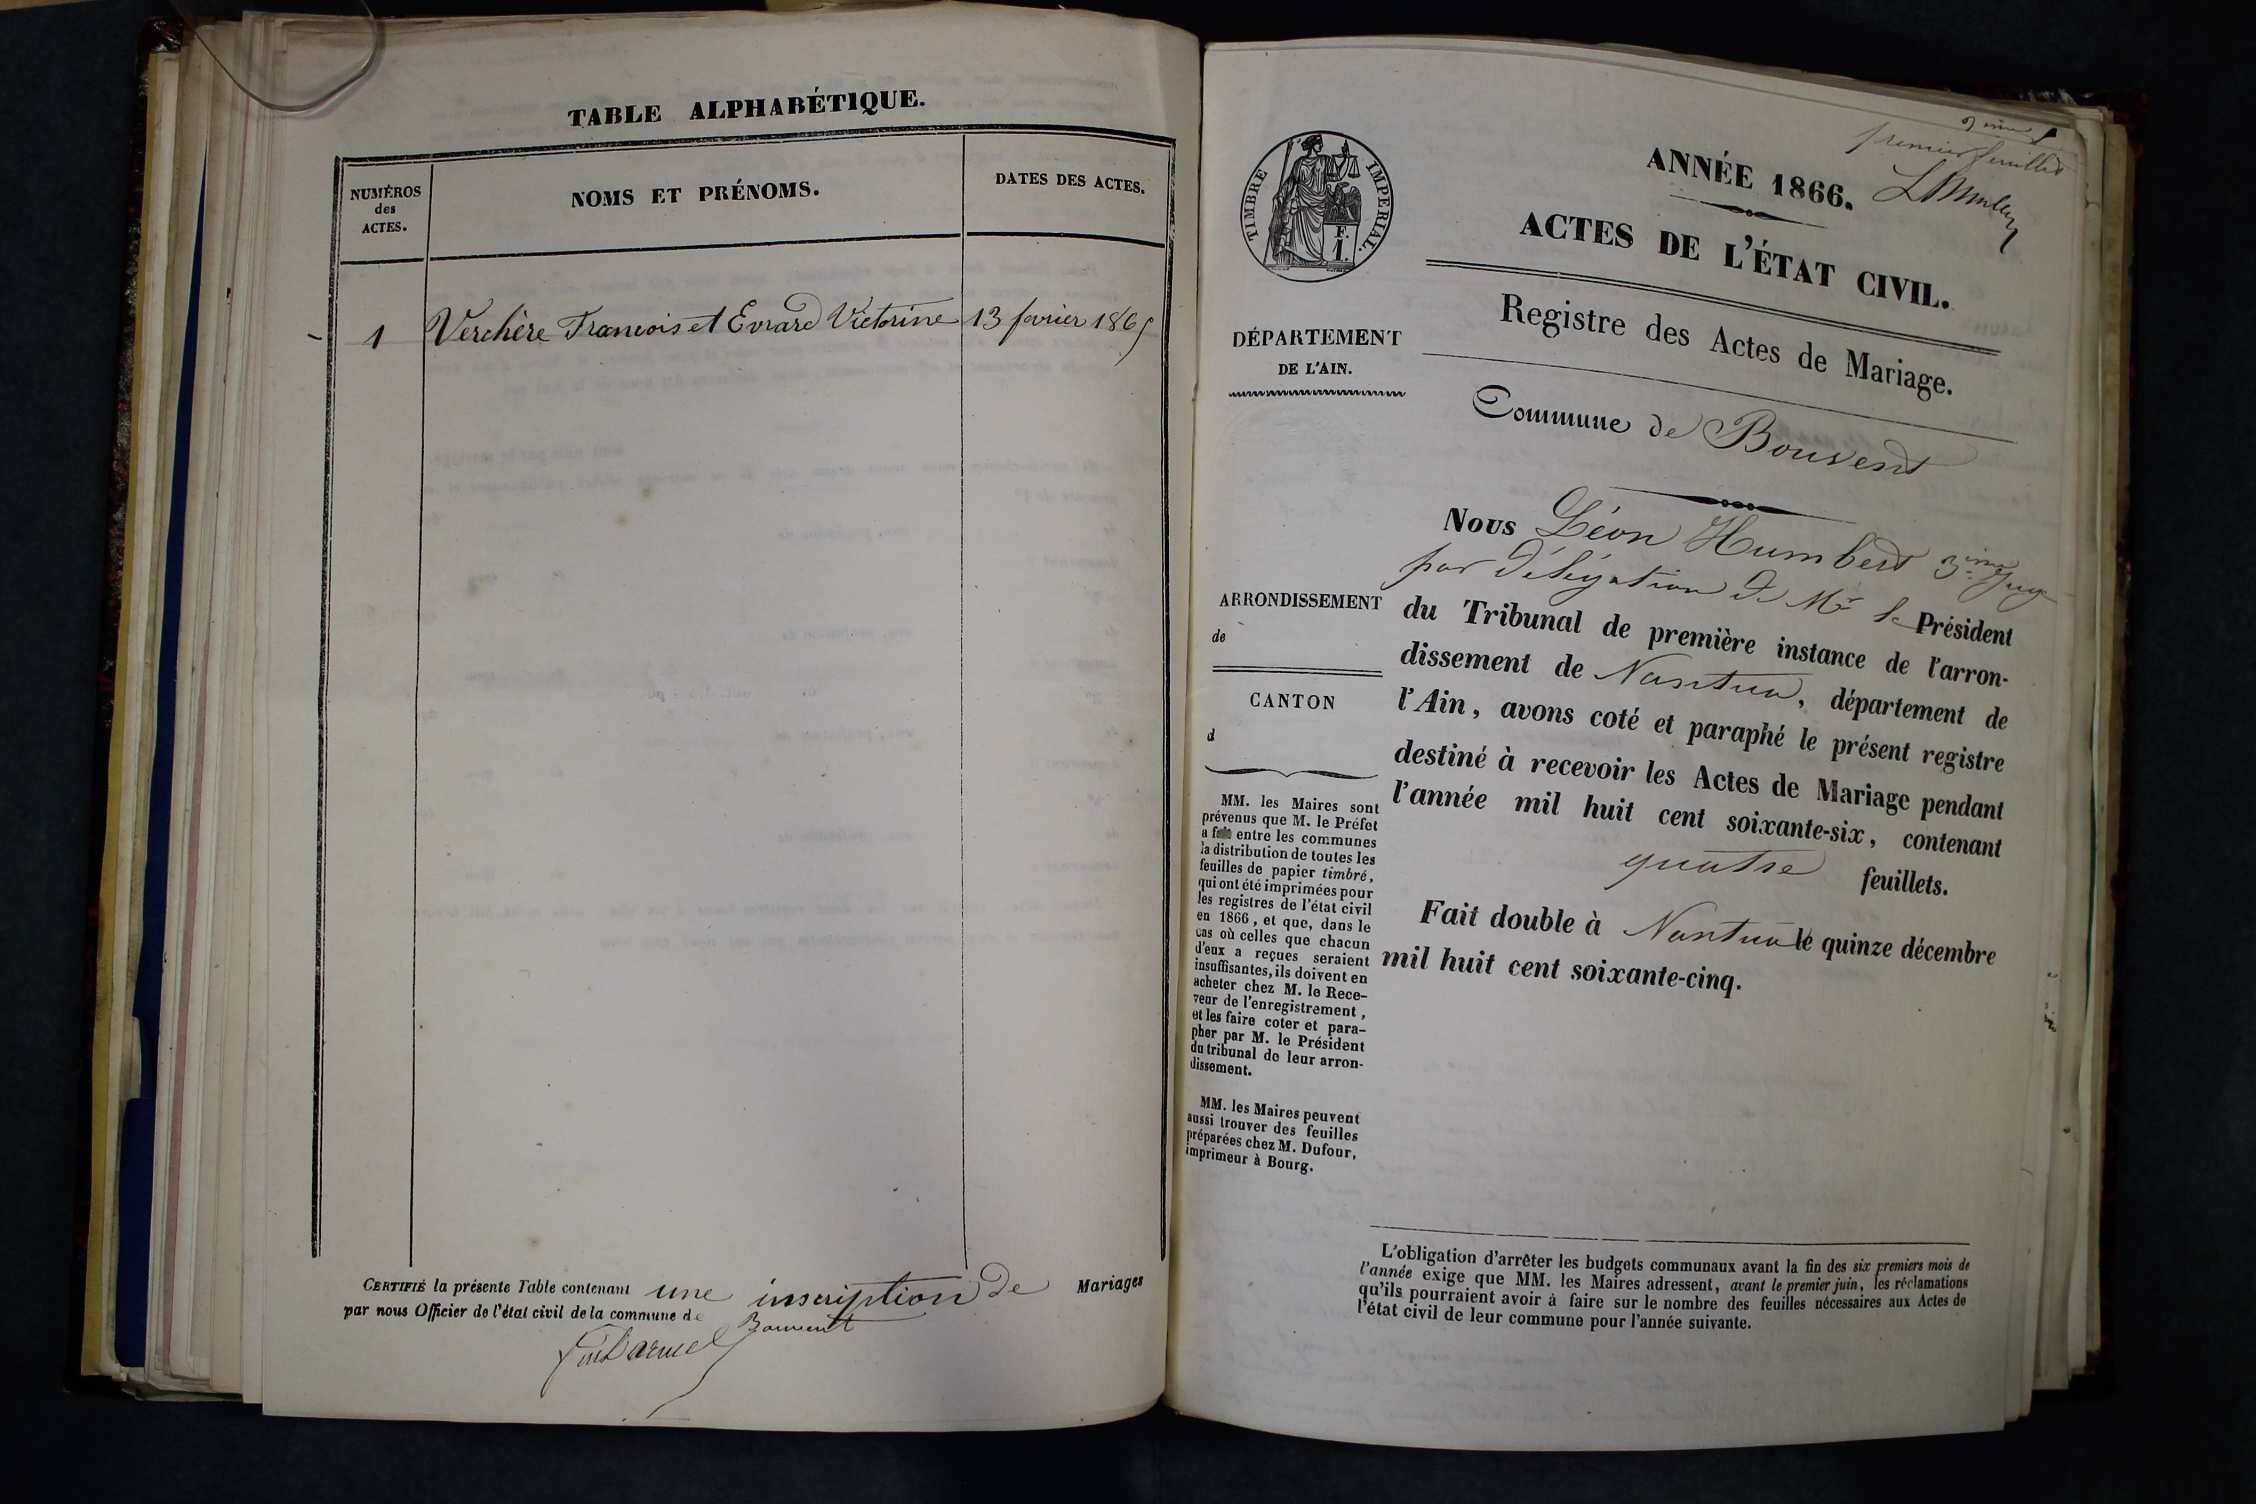 TABLE ALPHABÉTIQUE.
NUMÉROS
des
ACTES.
NOMS ET PRÉNOMS.
DATES DES ACTES.
1 Verchère Francois et Evrard Victorine 13 fevrier 1865
CERTIFIÉ la présente Table contenant une inscription de Mariages
par nous Officier de l'état civil de la commune de Bouvent
premier feuillet
TIMBRE IMPERIAL.
F.
1.
ANNÉE 1866.
ACTES DE L'ÉTAT CIVIL.
Registre des Actes de Mariage.
DÉPARTEMENT
DE L'AIN.
Commune de Bouvent
Nous Léon Humbert 3ème Juge
par délégation de Mr le Président
du Tribunal de première instance de l'arron-
dissement de Nantua, département de
l'Ain, avons coté et paraphé le présent registre
destiné à recevoir les Actes de Mariage pendant
l'année mil huit cent soixante-six, contenant
quatre feuillets.
Fait double à Nantua le quinze décembre
mil huit cent soixante-cinq.
ARRONDISSEMENT
de
CANTON
d
MM. les Maires sont
prévenus que M. le Préfet
a fait entre les communes
la distribution de toutes les
feuilles de papier timbré,
qui ont été imprimées pour
les registres de l'état civil
en 1866, et que, dans le
cas où celles que chacun
d'eux a reçues seraient
insuffisantes, ils doivent en
acheter chez M. le Rece-
veur de l'enregistrement,
et les faire coter et para-
pher par M. le Président
du tribunal de leur arron-
dissement.
MM. les Maires peuvent
aussi trouver des feuilles
préparées chez M. Dufour,
imprimeur à Bourg.
L'obligation d'arrêter les budgets communaux avant la fin des six premiers mois de
l'année exige que MM. les Maires adressent, avant le premier juin, les réclamations
qu'ils pourraient avoir à faire sur le nombre des feuilles nécessaires aux Actes de
l'état civil de leur commune pour l'année suivante.